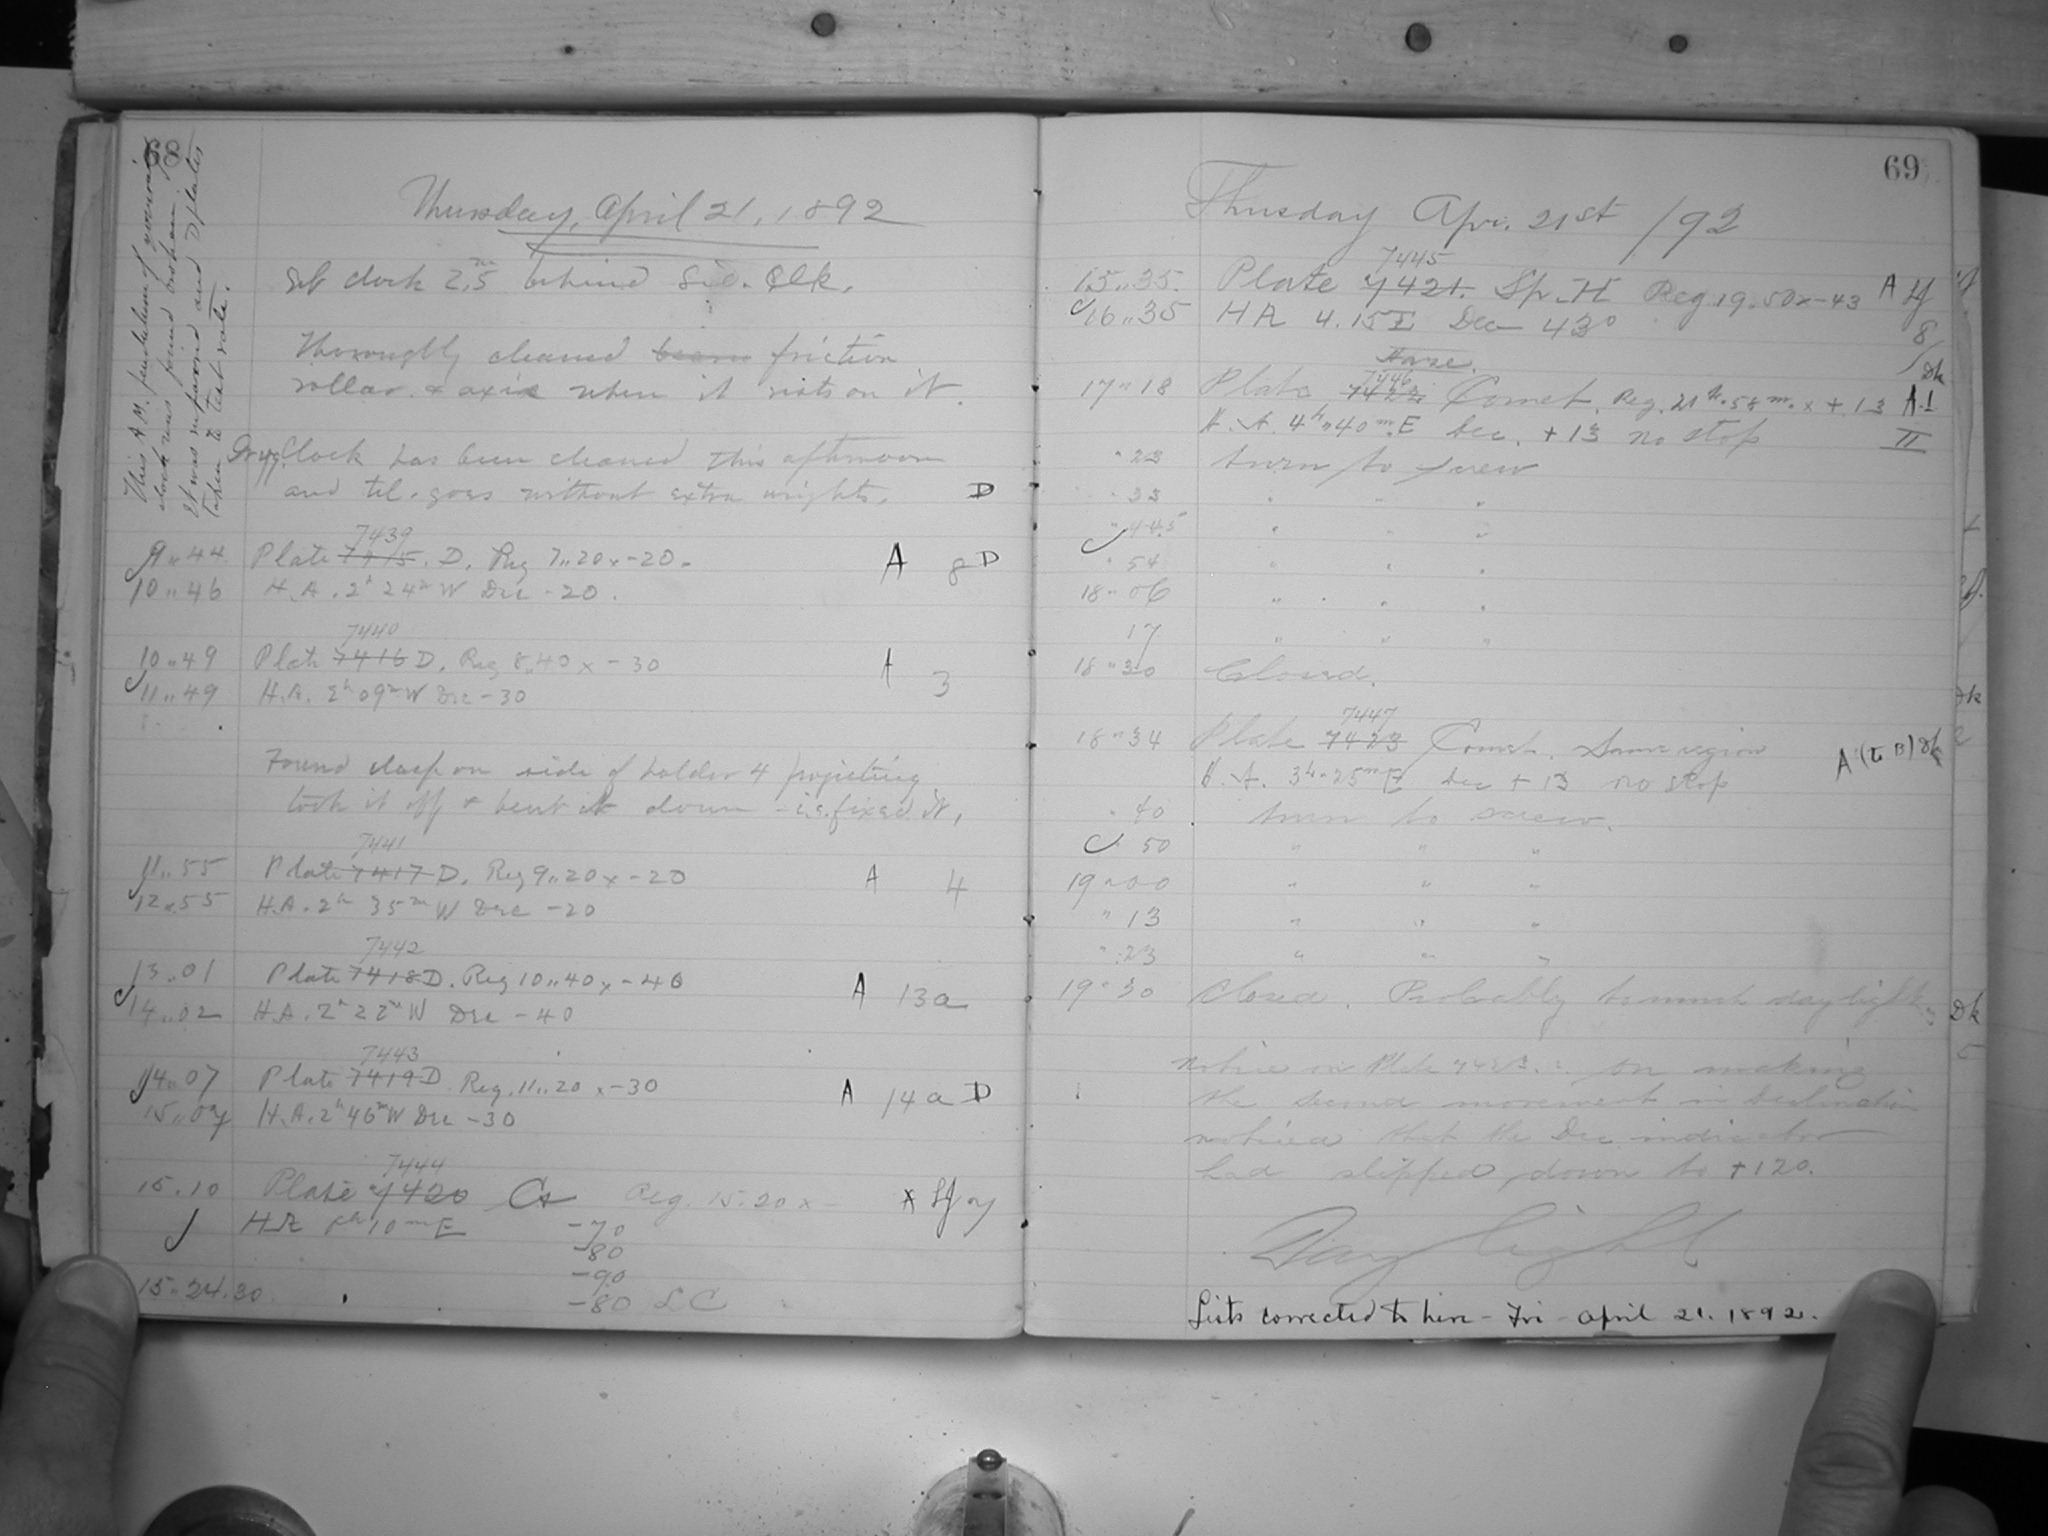 68
This A.M. pendulum of governing
clock was found broken.
It was repaired and D plates
taken to test rate.
Thursday, April 21, 1892
Set clock 2.5m behind Sid. Clk.
Thoroughly cleaned friction
roller & axis where it rests on it.
Clock has been cleaned this afternoon
and tel. goes without extra weights. D
7439
9"44 Plate 7415. D. Reg 7"20 x -20. A 8 D
10"46 H.A. 2h 24m W Dec -20.
7440
10"49 Plate 7416 D. Reg 8"40 x -30 A 3
11"49 H.A. 2h 09m W Dec -30
Found clasp on side of holder 4 projecting
took it off & bent it down - i.e. fixed it.
7441
11"55 Plate 7417 D. Reg 9"20 x -20 A 4
12"55 H.A. 2h 35m W Dec -20
7442
13"01 Plate 7418 D. Reg 10"40 x -40 A 13a
14"02 H.A. 2h 22m W Dec -40
7443
14"07 Plate 7419 D Reg. 11"20 x -30 A 14a D
15"07 H.A. 2h 46m W Dec -30
7444
15.10 Plate 7420 Reg. 15.20 x
10m E -70
-80
-90
15.24.30 -80 LC
69
Thusday Apr. 21st /92
7445
15"35. Plate 7421. Sp. H Reg 19.50 x -43 A
16"35 HA 4.15 E Dec 43° 8
Haze. Dk
7446
17"18 Plate 7422 Comet. Reg. 21h.58m. x +13 A.I
H.A. 4h"40m.E Dec. +13 no stop II
"23 turn to screw
"33 " " "
"44.5 " " "
"54 " " "
18"06 " " "
17 " " "
18"30 Closed.
7447
18"34 Plate 7423 Comet. Same region
H.A. 3h"25m E Dec +13 no stop
"40 turn to screw.
"50 " " "
19"00 " " "
"13 " " "
"23 " " "
19"30 Closed. Probably too much daylight Dk
Notice on Plate on making
the second movement in Declination
noticed that the Dec indicator
had slipped down to +120.
Daylight
Lists corrected to here - Fri - April 21. 1892.